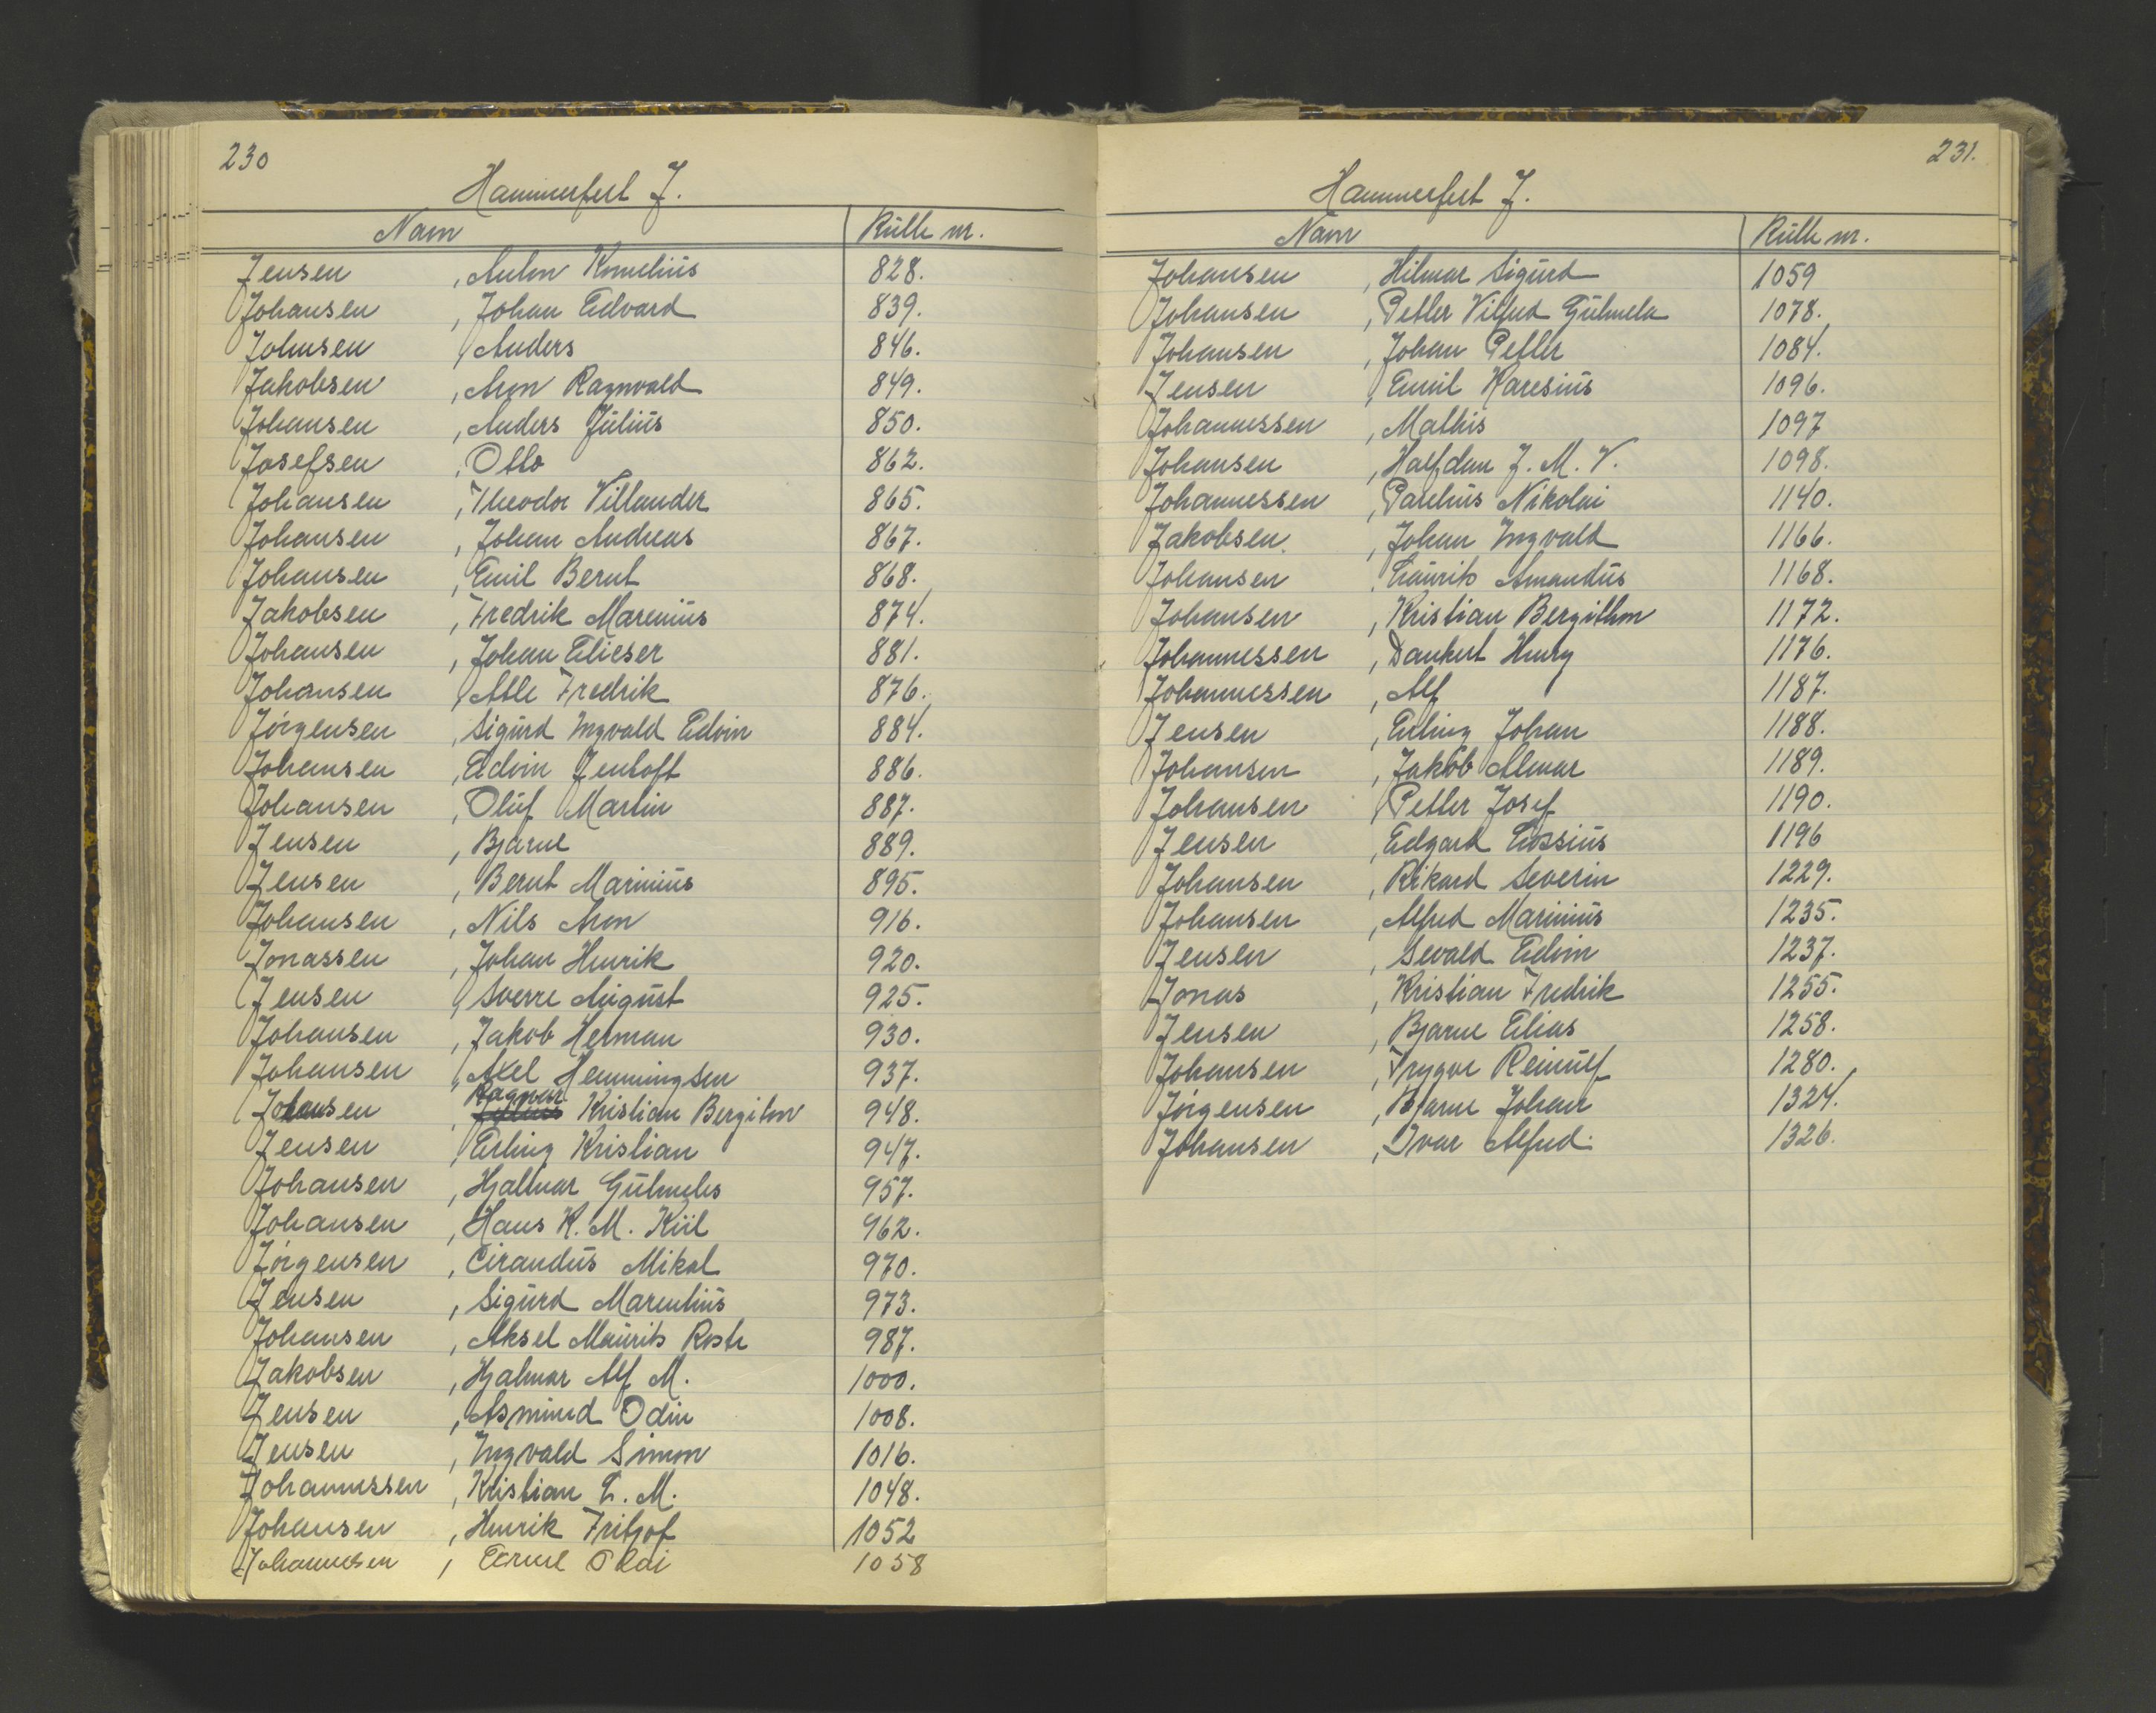 230
Hammerfest J.
Navn Rulle nr.
Jensen , Anton Kornelius 828.
Johansen , Johan Edvard 839.
Johnsen , Anders 846.
Jakobsen , Aron Ragnvald 849.
Johansen , Anders Julius 850.
Josefsen , Otto 862.
Johansen , Theodor Villander 865.
Johansen , Johan Andreas 867.
Johansen , Emil Bernt 868.
Jakobsen , Fredrik Marenius 874.
Johansen , Johan Elieser 881.
Johansen , Atle Fredrik 876.
Jørgensen , Sigurd Ingvald Edvin 884.
Johansen , Edvin Jentoft 886.
Johansen , Oluf Martin 887.
Jensen , Bjarne 889.
Jensen , Bernt Marinius 895.
Johansen , Nils Aron 916.
Jonassen , Johan Henrik 920.
Jensen , Sverre August 925.
Johansen , Jakob Herman 930.
Johansen , Axel Hemmingsen 937.
Johansen , Ragnar Kristian Bergiton 948.
Jensen , Erling Kristian 947.
Johansen , Hjalmar Gulmeles 957.
Johansen , Hans K. M. Kiil 962.
Jørgensen , Cirandus Mikal 970.
Jensen , Sigurd Marentius 973.
Johansen , Aksel Maurits Roste 987.
Jakobsen , Hjalmar Alf M. 1000.
Jensen , Asmund Odin 1008.
Jensen , Ingvald Simon 1016.
Johannessen , Kristian E. M. 1048.
Johansen , Henrik Fritjof 1052
Johannesen , 1058
231.
Hammerfest J.
Navn Rulle nr.
Johansen , Hilmar Sigurd 1059
Johansen , Petter Vilfred Gulmela 1078.
Johansen , Johan Petter 1084.
Jensen , Emil Karesius 1096.
Johannessen , Mathis 1097
Johansen , Halfdan J. M. V. 1098.
Johannessen , Parelius Nikolai 1140.
Jakobsen , Johan Ingvald 1166.
Johansen , Laurits Amandus 1168.
Johansen , Kristian Bergithon 1172.
Johannessen , Dankert Henry 1176.
Johannessen , Alf 1187.
Jensen , Erling Johan 1188.
Johansen , Jakob Almar 1189.
Johansen , Petter Josef 1190.
Jensen , Edgard 1196
Johansen , Rikard Severin 1229.
Johansen , Alfred Marinius 1235.
Jensen , Sevald Edvin 1237.
Jonas , Kristian Fredrik 1255.
Jensen , Bjarne Elias 1258.
Johansen , Trygve Reinulf 1280.
Jørgensen , Bjarne Johan 1324.
Johansen , Ivar Alfred. 1326.